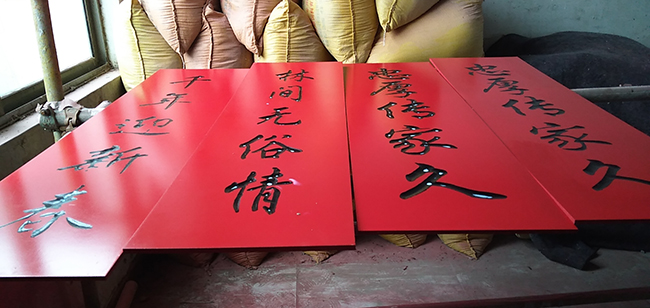 千年迎新春
林间无俗情
忠厚传家久
忠厚传家久